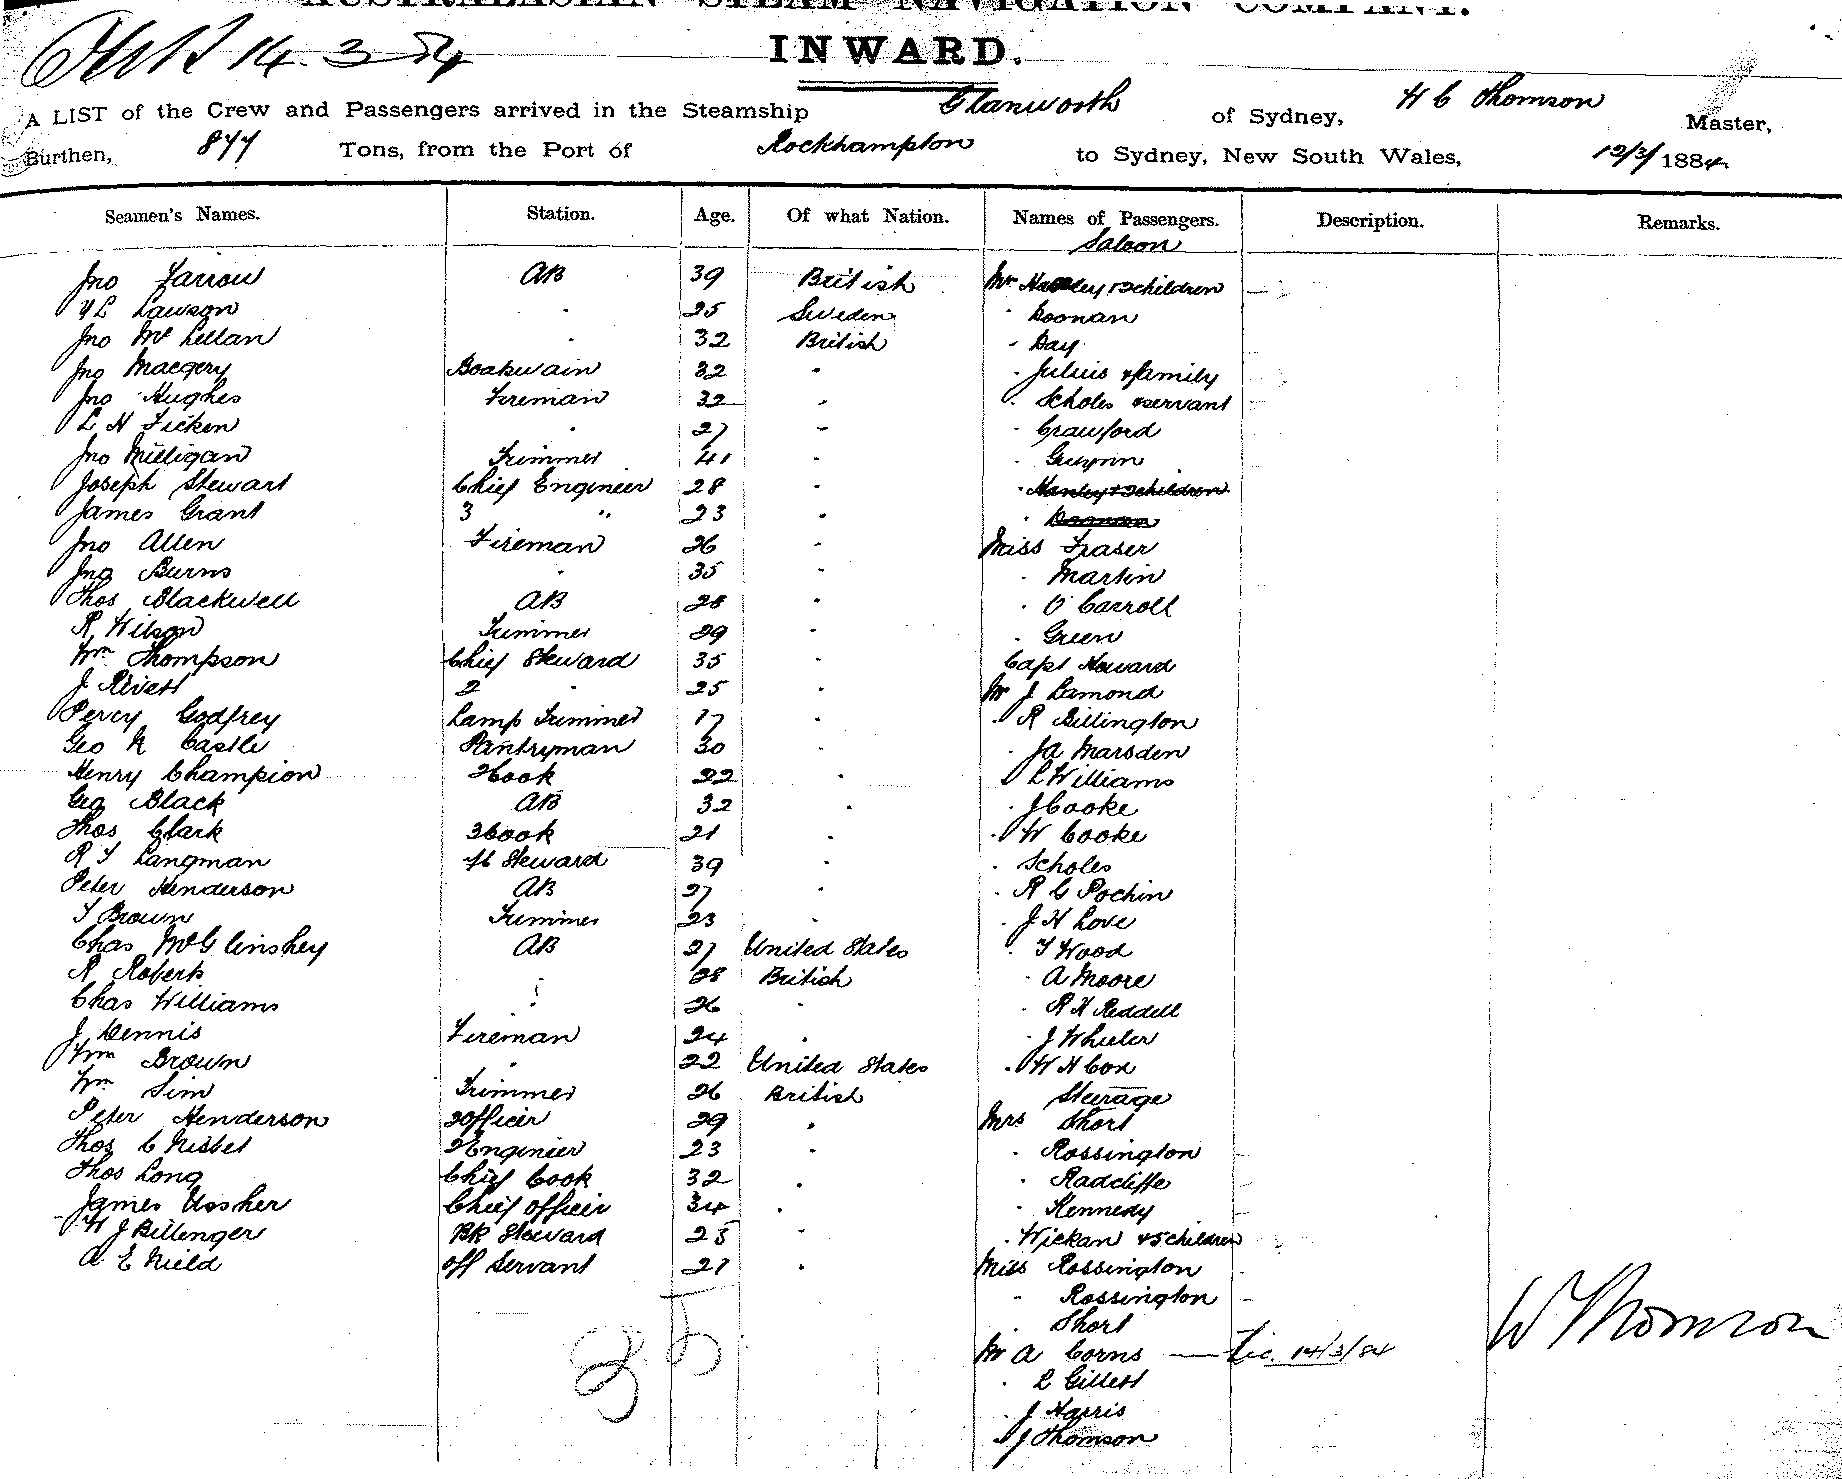 AUSTRALASIAN STEAM NAVIGATION COMPANY.
14 3 84
INWARD.
A LIST of the Crew and Passengers arrived in the Steamship Glanworth of Sydney, H C Thomson Master,
Burthen, 877 Tons, from the Port of Rockhampton to Sydney, New South Wales, 12/3/1884
Seamen's Names. Station. Age. Of what Nation. Names of Passengers. Description. Remarks.
Saloon
Jno Farrow AB 39 British Mr Hanley & children
Lawson " 25 Sweden " Doonan
Jno McLellan " 32 British " Day
Jno Macgery Boatswain 32 " " Julius & family
Jno Hughes Fireman 32 " " Scholes & servant
L H Ficken " 27 " " Crawford
Jno Milligan Trimmer 41 " " Gwynn
Joseph Stewart Chief Engineer 28 " " Hanley & children
James Grant 3 " 23 " " Doonan
Jno Allen Fireman 26 " Miss Fraser
Jno Burns " 35 " " Martin
Thos Blackwell AB 28 " " O'Carroll
R Wilson Trimmer 29 " " Green
Wm Thompson Chief Steward 35 " Capt Howard
J Rivett 2 " 25 " Mr J Lamond
Percy Godfrey Lamp Trimmer 17 " " R Billington
Geo N Castle Pantryman 30 " " JA Marsden
Henry Champion 2 Cook 22 " L Williams
Geo Black AB 32 " " J Cooke
Thos Clark 3 Cook 21 " " W Cooke
R T Langman Steward 39 " " Scholes
Peter Henderson AB 27 " " R C Pochin
T Brown Trimmer 23 " " J H Love
Chas McGlinshey AB 27 United States " T Wood
R Roberts " 28 British " A Moore
Chas Williams " 26 " " R H Reddell
J Dennis Fireman 24 " " J Wheeler
Wm Brown " 22 United States " W H Cox
Wm Sim Trimmer 26 British Steerage
Peter Henderson 2 Officer 29 " Mrs Short
Thos C Nisbet 2 Engineer 23 " " Rossington
Thos Long Chief Cook 32 " " Radcliffe
James Ussher Chief Officer 34 " " Kennedy
W J Billenger Bk Steward 25 " " Wickan & 5 children
A E Nield Off Servant 27 " Miss Rossington
" Rossington
35 " Short
Mr A Corns 14/3/84
W Thomson
" L Gillett
" J Harris
" J Thomson